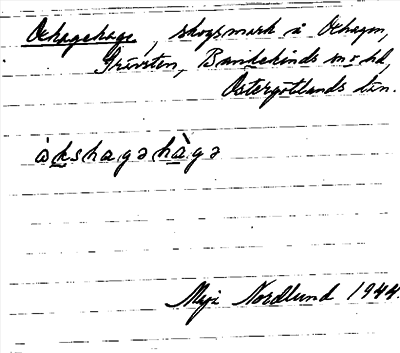 Oxhagehage, skogsmark å Oxhagen,
Grüvsten, Bankekinds m o hd,
Östergötlands län.
àkshagəhàgə
Maj Nordlund 1944.